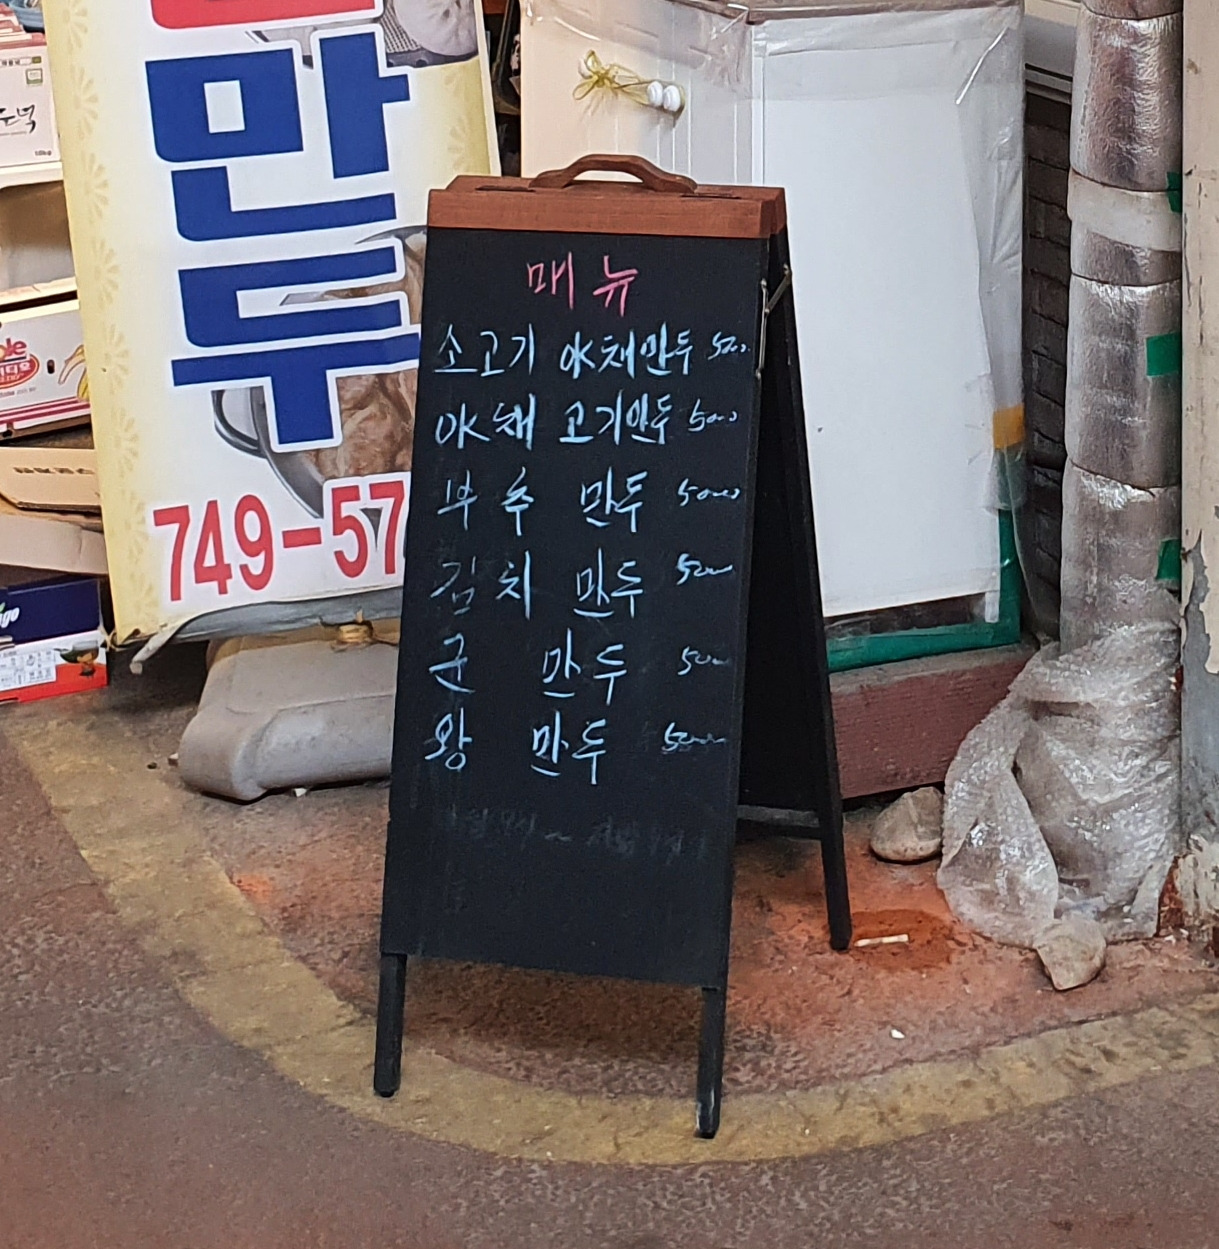 만두
749-57
매뉴
소고기 야채만두 5000
야채 고기만두 5000
부추 만두 5000
김치 만두 5000
군 만두 5000
왕 만두 5000